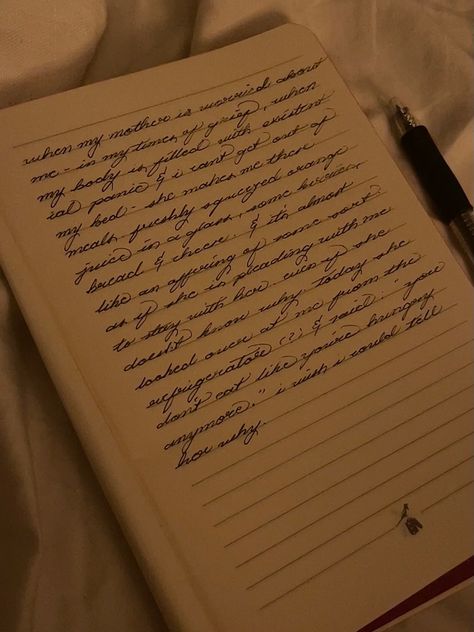 when my mother is worried about
me - in my times of grief, when
my body is filled with existent
ial panic & i cant get out of
my bed - she makes me three
meals. freshly squeezed orange
juice in a glass, some
bread & cheese. & it's almost
like an offering of some sort.
as if she is pleading with me
to stay with her. even if she
doesn't know why. today she
looked over at me from the
refrigerator (?) & said: "you
don't eat like you're hungry
anymore." i wish i could tell
her why.